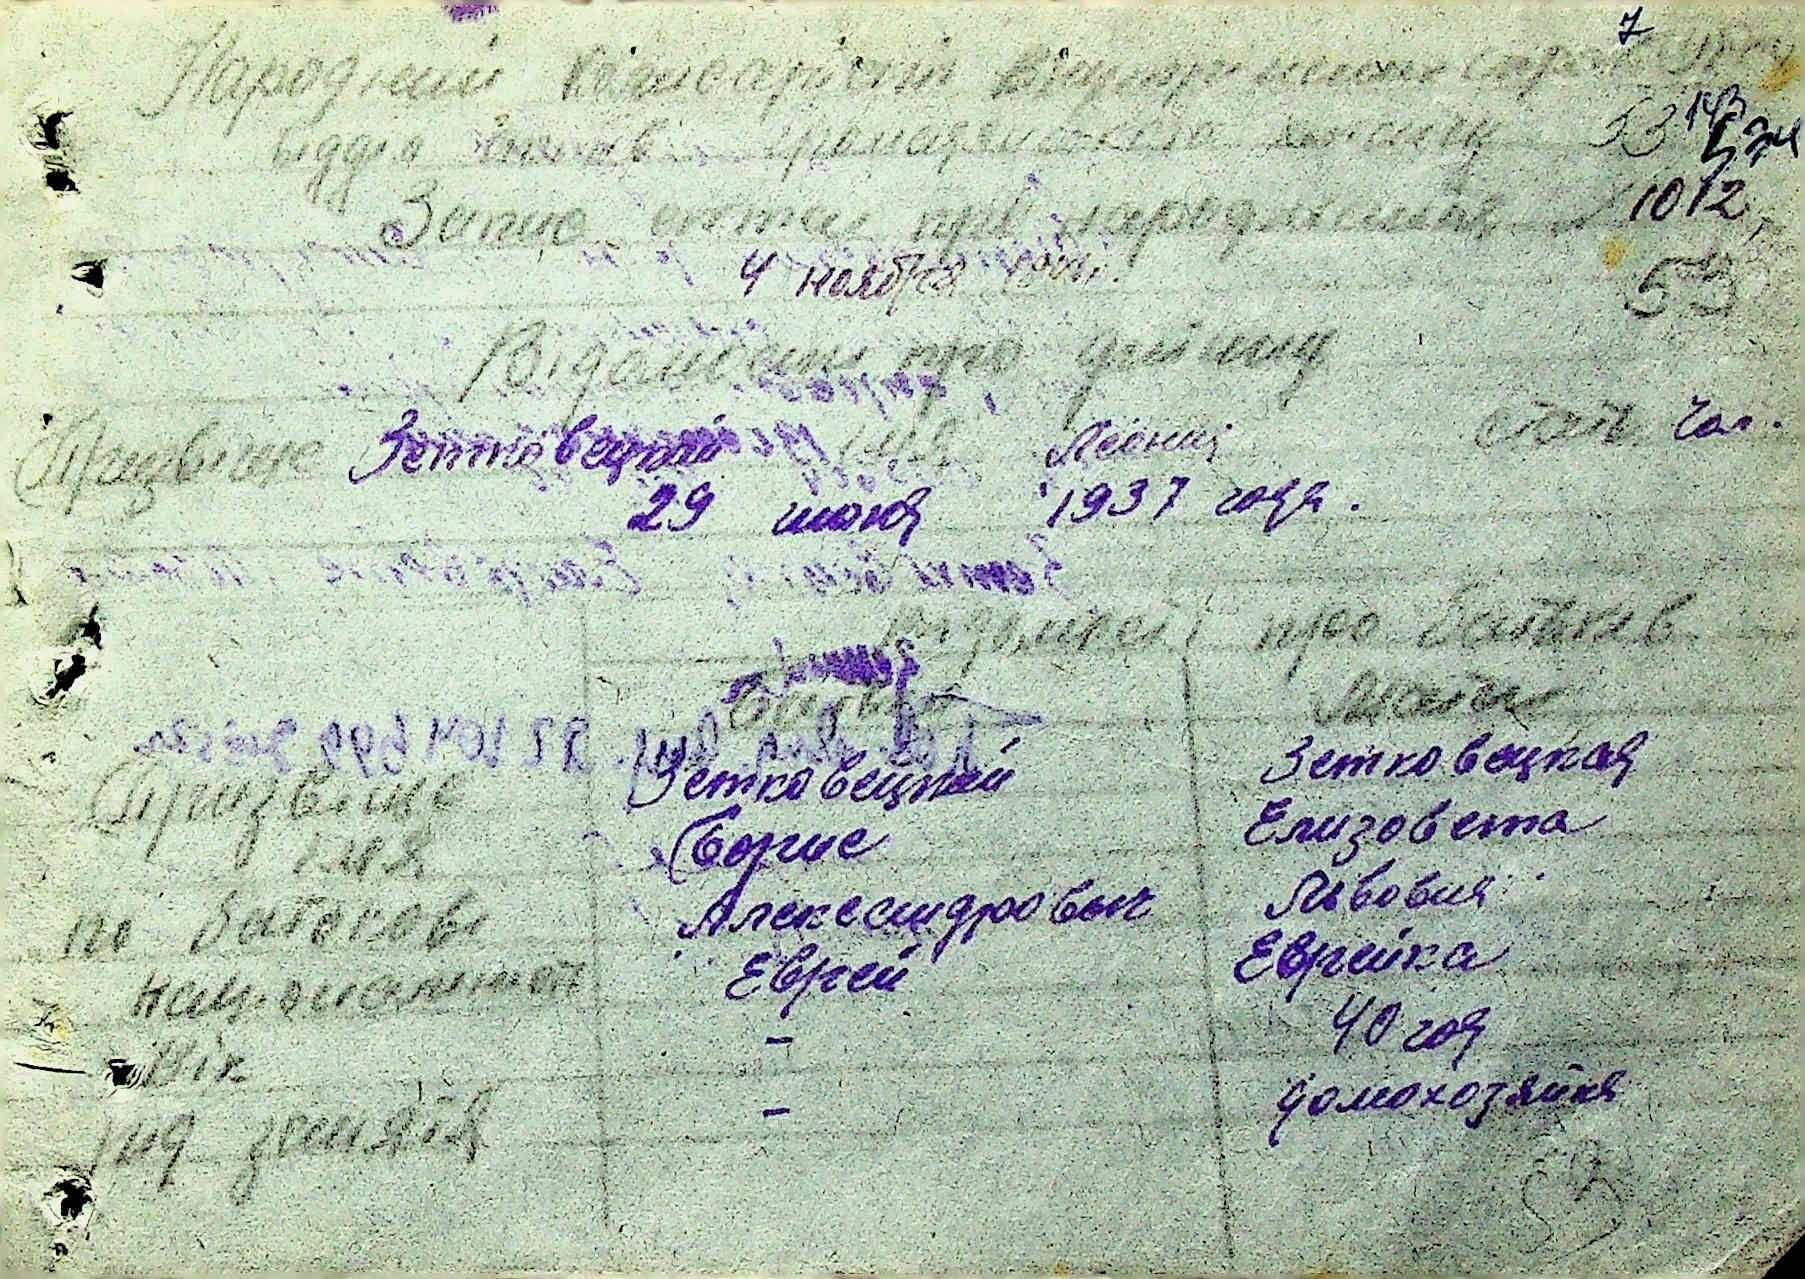 7
Народний комісаріат внутрішніх справ УРСР
відділ актів громадянського стану 53
Запис актів про народження 1012
4 ноября
53
Відомості про дитину
Прізвище Зетковецкий Імя Леонид стать чол.
29 июня 1937 года.
Відомості про батьків
Батько Мати
Прізвище Зетковецкий Зетковецкая
Імя Борис Елизовета
по батькові Александрович Львовна
національність Еврей Еврейка
Вік - 40 год
рід заняття - домохозяйка